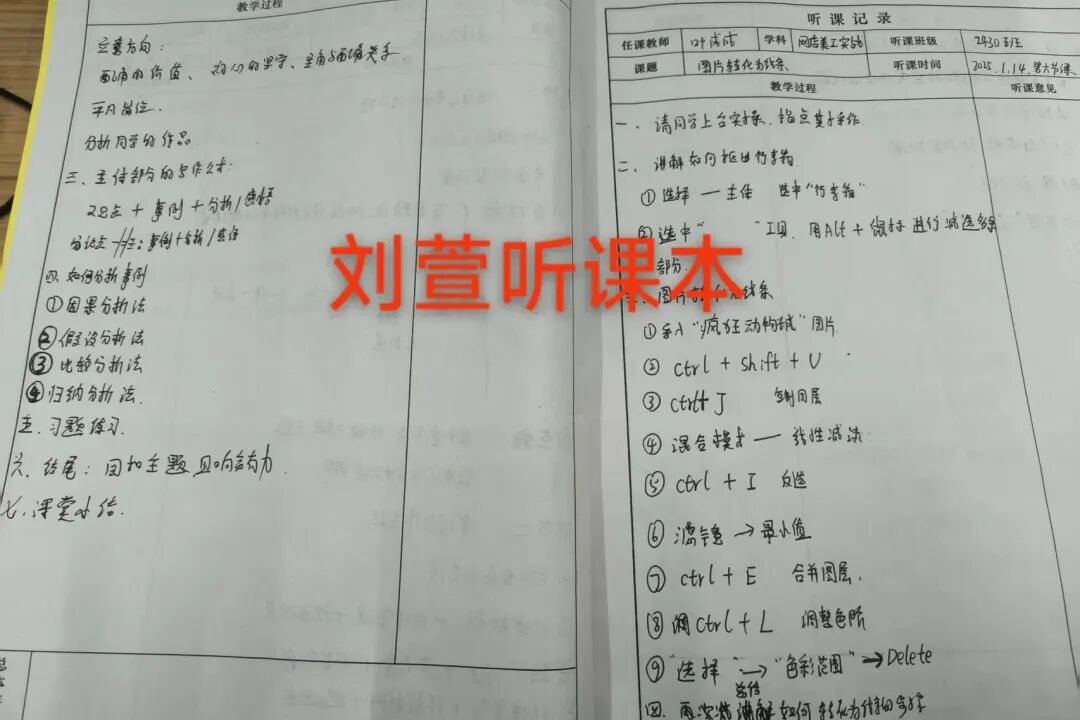 教学过程
立意方向:
平凡岗位.
分析同学的作品
三、主体部分的写作公式:
观点 + 事例 + 分析/感悟
四. 如何分析事例
①因果分析法
②假设分析法
③比较分析法
④归纳分析法.
五. 习题练习.
六、结尾: 回扣主题,且响亮有力.
七. 课堂小结.
听课记录
任课教师 学科 网店美工实战 听课班级 2430
课题 图片转化为线条、 听课时间 2025.1.14. 第六节课
教学过程 听课意见
一、请同学上台实操、指点其操作.
二、讲解如何抠出行李箱
①选择 — 主体 选中"行李箱"
②选中" "工具. 用Alt + 进行减选多余
部分.
刘萱听课本
三、图片转化为线条
①导入"疯狂动物城"图片
② ctrl + Shift + U
③ ctrl+ J 复制图层
④ 混合模式 — 线性减淡
⑤ ctrl + I 反选
⑥ 滤镜 → 最小值
⑦ ctrl + E 合并图层.
⑧ 调ctrl + L 调整色阶
⑨ "选择" → "色彩范围" → Delete
总结
四. 再次 讲解 如何转化为线条的